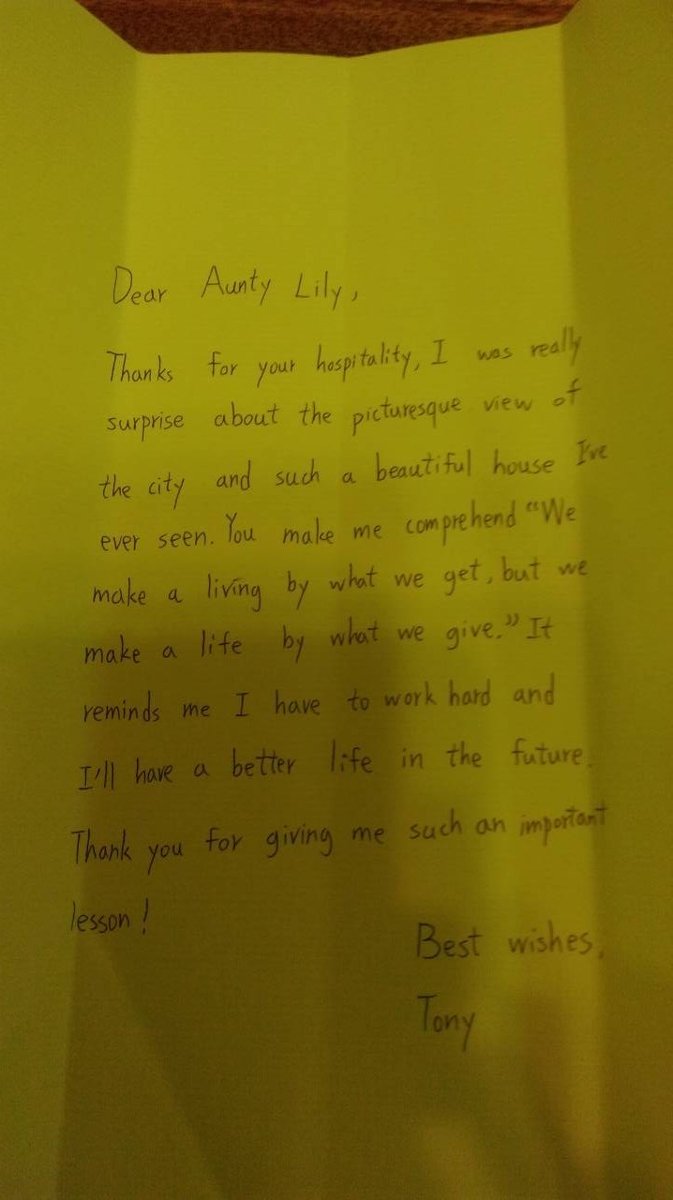 Dear Aunty Lily,
Thanks for your hospitality, I was really
surprise about the picturesque view of
the city and such a beautiful house I've
ever seen. You make me comprehend “We
make a living by what we get, but we
make a life by what we give.” It
reminds me I have to work hard and
I'll have a better life in the future.
Thank you for giving me such an important
lesson!
Best wishes,
Tony